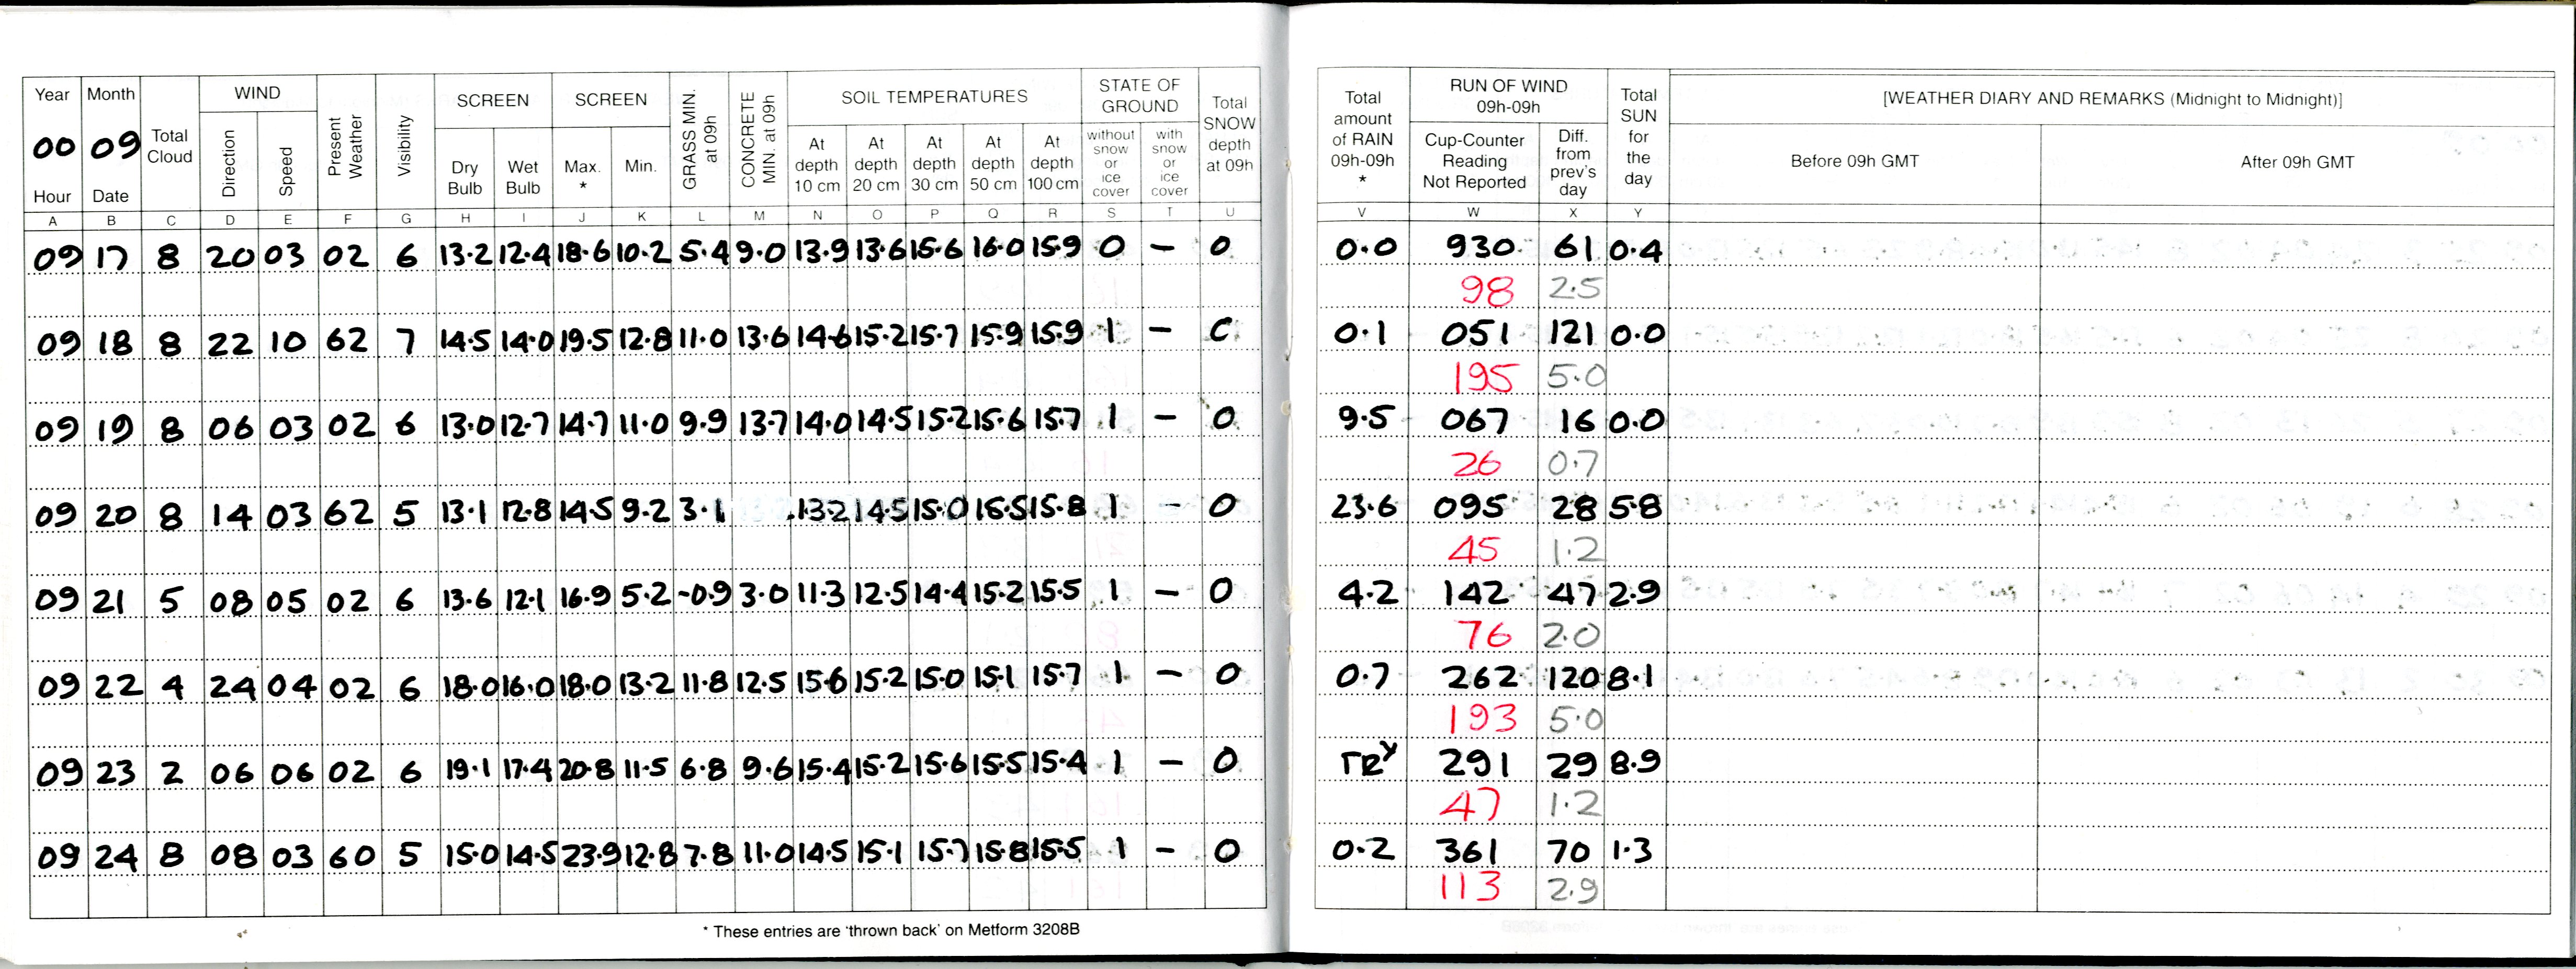 Year Month Total Cloud WIND Present Weather Visibility SCREEN SCREEN GRASS MIN. at 09h CONCRETE MIN. at 09h SOIL TEMPERATURES STATE OF GROUND Total SNOW depth at 09h
00 09 Direction Speed Dry Bulb Wet Bulb Max. * Min. At depth 10 cm At depth 20 cm At depth 30 cm At depth 50 cm At depth 100 cm without snow or ice cover with snow or ice cover
Hour Date
A B C D E F G H I J K L M N O P Q R S T U
09 17 8 20 03 02 6 13.2 12.4 18.6 10.2 5.4 9.0 13.9 13.6 15.6 16.0 15.9 0 – 0
09 18 8 22 10 62 7 14.5 14.0 19.5 12.8 11.0 13.6 14.6 15.2 15.7 15.9 15.9 1 –
09 19 8 06 03 02 6 13.0 12.7 14.7 11.0 9.9 13.7 14.0 14.5 15.2 15.6 15.7 1 – 0
09 20 8 14 03 62 5 13.1 12.8 14.5 9.2 3.1 13.2 14.5 15.0 15.5 15.8 1 – 0
09 21 5 08 05 02 6 13.6 12.1 16.9 5.2 -0.9 3.0 11.3 12.5 14.4 15.2 15.5 1 – 0
09 22 4 24 04 02 6 18.0 16.0 18.0 13.2 11.8 12.5 15.6 15.2 15.0 15.1 15.7 1 – 0
09 23 2 06 06 02 6 19.1 17.4 20.8 11.5 6.8 9.6 15.4 15.2 15.6 15.5 15.4 1 – 0
09 24 8 08 03 60 5 15.0 14.5 23.9 12.8 7.8 11.0 14.5 15.1 15.7 15.8 15.5 1 – 0
* These entries are 'thrown back' on Metform 3208B
Total amount of RAIN 09h-09h * RUN OF WIND 09h-09h Total SUN for the day [WEATHER DIARY AND REMARKS (Midnight to Midnight)]
Cup-Counter Reading Not Reported Diff. from prev's day Before 09h GMT After 09h GMT
V W X Y
0.0 930 61 0.4
98 2.5
0.1 051 121 0.0
195 5.0
9.5 067 16 0.0
26 0.7
23.6 095 28 5.8
45 1.2
4.2 142 47 2.9
76 2.0
0.7 262 120 8.1
193 5.0
291 29 8.9
47 1.2
0.2 361 70 1.3
113 2.9